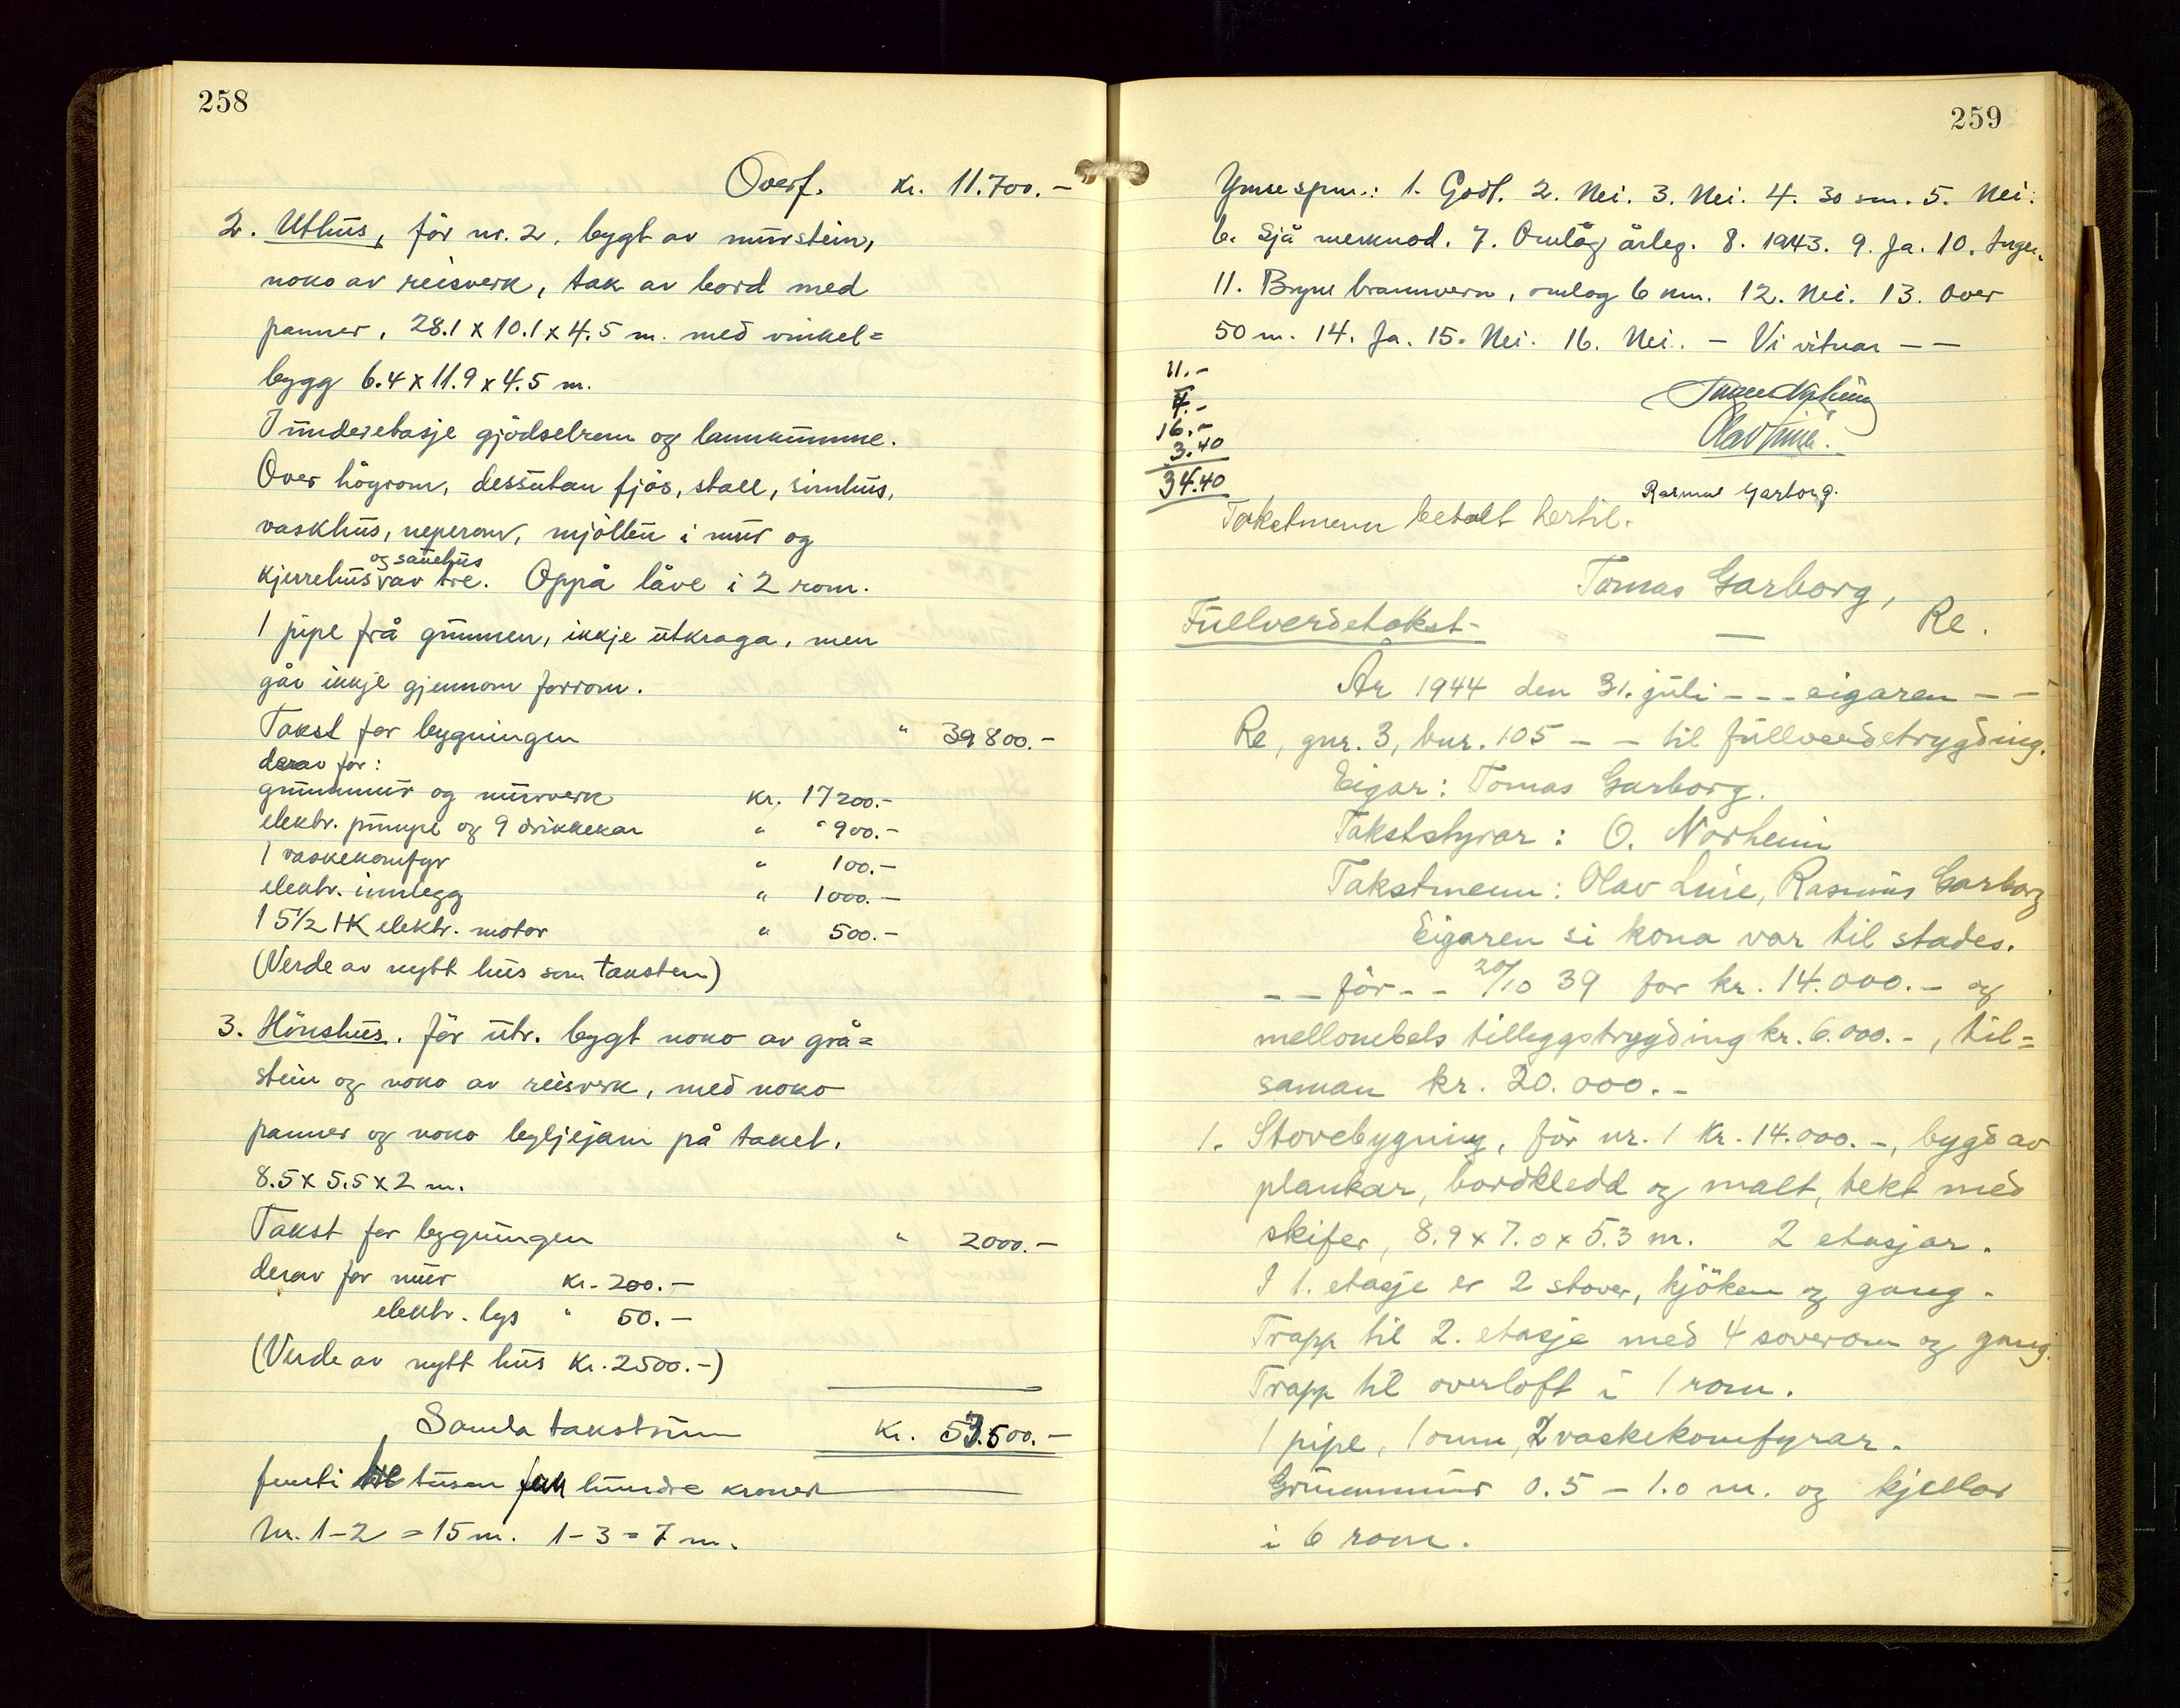 258
Overf. Kr. 11.700.-
2. Uthus, för nr. 2, bygt av murstein,
noko av reisverk, tak av bord med
panner, 28.1 x 10.1 x 4.5 m. med vinkel=
bygg 6.4 x 11.9 x 4.5 m.
I underetasje gjödselrom og lannkumme.
Over höyrom, dessutan fjös, stall, sinhus,
vaskhus, neperom, mjöltu i mur og
og sauehus
kjerrehus v av tre. Oppå låve i 2 rom.
1 pipe frå grunnen, ikkje utkraga, men
går ikkje gjennom forrom.
Takst for bygningen " 39 800.-
derav för:
grunnmur og murverk Kr. 17 200.-
elektr. pumpe og 9 drikkekar " 900.-
1 vaskekomfyr " 100.-
elektr. innlegg " 1000.-
1 5½ HK elektr. motor " 500.-
(Verde av nytt hus som taksten)
3. Hönshus. för utr. bygt noko av grå=
stein og noko av reisverk, med noko
panner og noko bylgjejarn på taket.
8.5 x 5.5 x 2 m.
Takst for bygningen " 2000.-
derav for mur Kr. 200.-
elektr. lys " 50.-
(Verde av nytt hus Kr. 2500.-)
Samla takstsum Kr. 53.500.-
femti tusen fem hundre kroner
Nr. 1-2 = 15 m. 1-3 = 7 m.
259
Ymse spm.: 1. Godt. 2. Nei. 3. Nei. 4. 30 sm. 5. Nei.
6. Sjå merknad. 7. Omlag årleg. 8. 1943. 9. Ja. 10. Ingen.
11. Bryne brannvern, omlag 6 km. 12. Nei. 13. Over
50 m. 14. Ja. 15. Nei. 16. Nei. - Vi vitnar - -
11.-
4.-
16.-
3.40
34.40
Rasmus Garborg.
Takstmenn betalt hertil.
Tomas Garborg,
Fullverdetakst - — Re.
År 1944 den 31. juli - - - eigaren - -
Re, gnr. 3, bnr. 105 - - til fullverdetrygding.
Eigar: Tomas Garborg.
Takststyrar: O. Norheim
Takstmenn: Olav Line, Rasmus Garborg
Eigaren si kona var til stades.
- - för - - 20/10 39 for kr. 14.000.- og
mellombels tilleggstrygding kr. 6.000.-, til=
saman kr. 20.000.-
1. Stovebygning, för nr. 1 Kr. 14.000.-, bygd av
plankar, bordkledd og malt, tekt med
skifer, 8.9 x 7.0 x 5.3 m. 2 etasjar.
I 1. etasje er 2 stover, kjöken og gang.
Trapp til 2. etasje med 4 soverom og gang.
Trapp til overloft i 1 rom.
1 pipe, 1 omn, 2 vaskekomfyrar.
Grunnmur 0.5 - 1.0 m. og kjellar
i 6 rom.